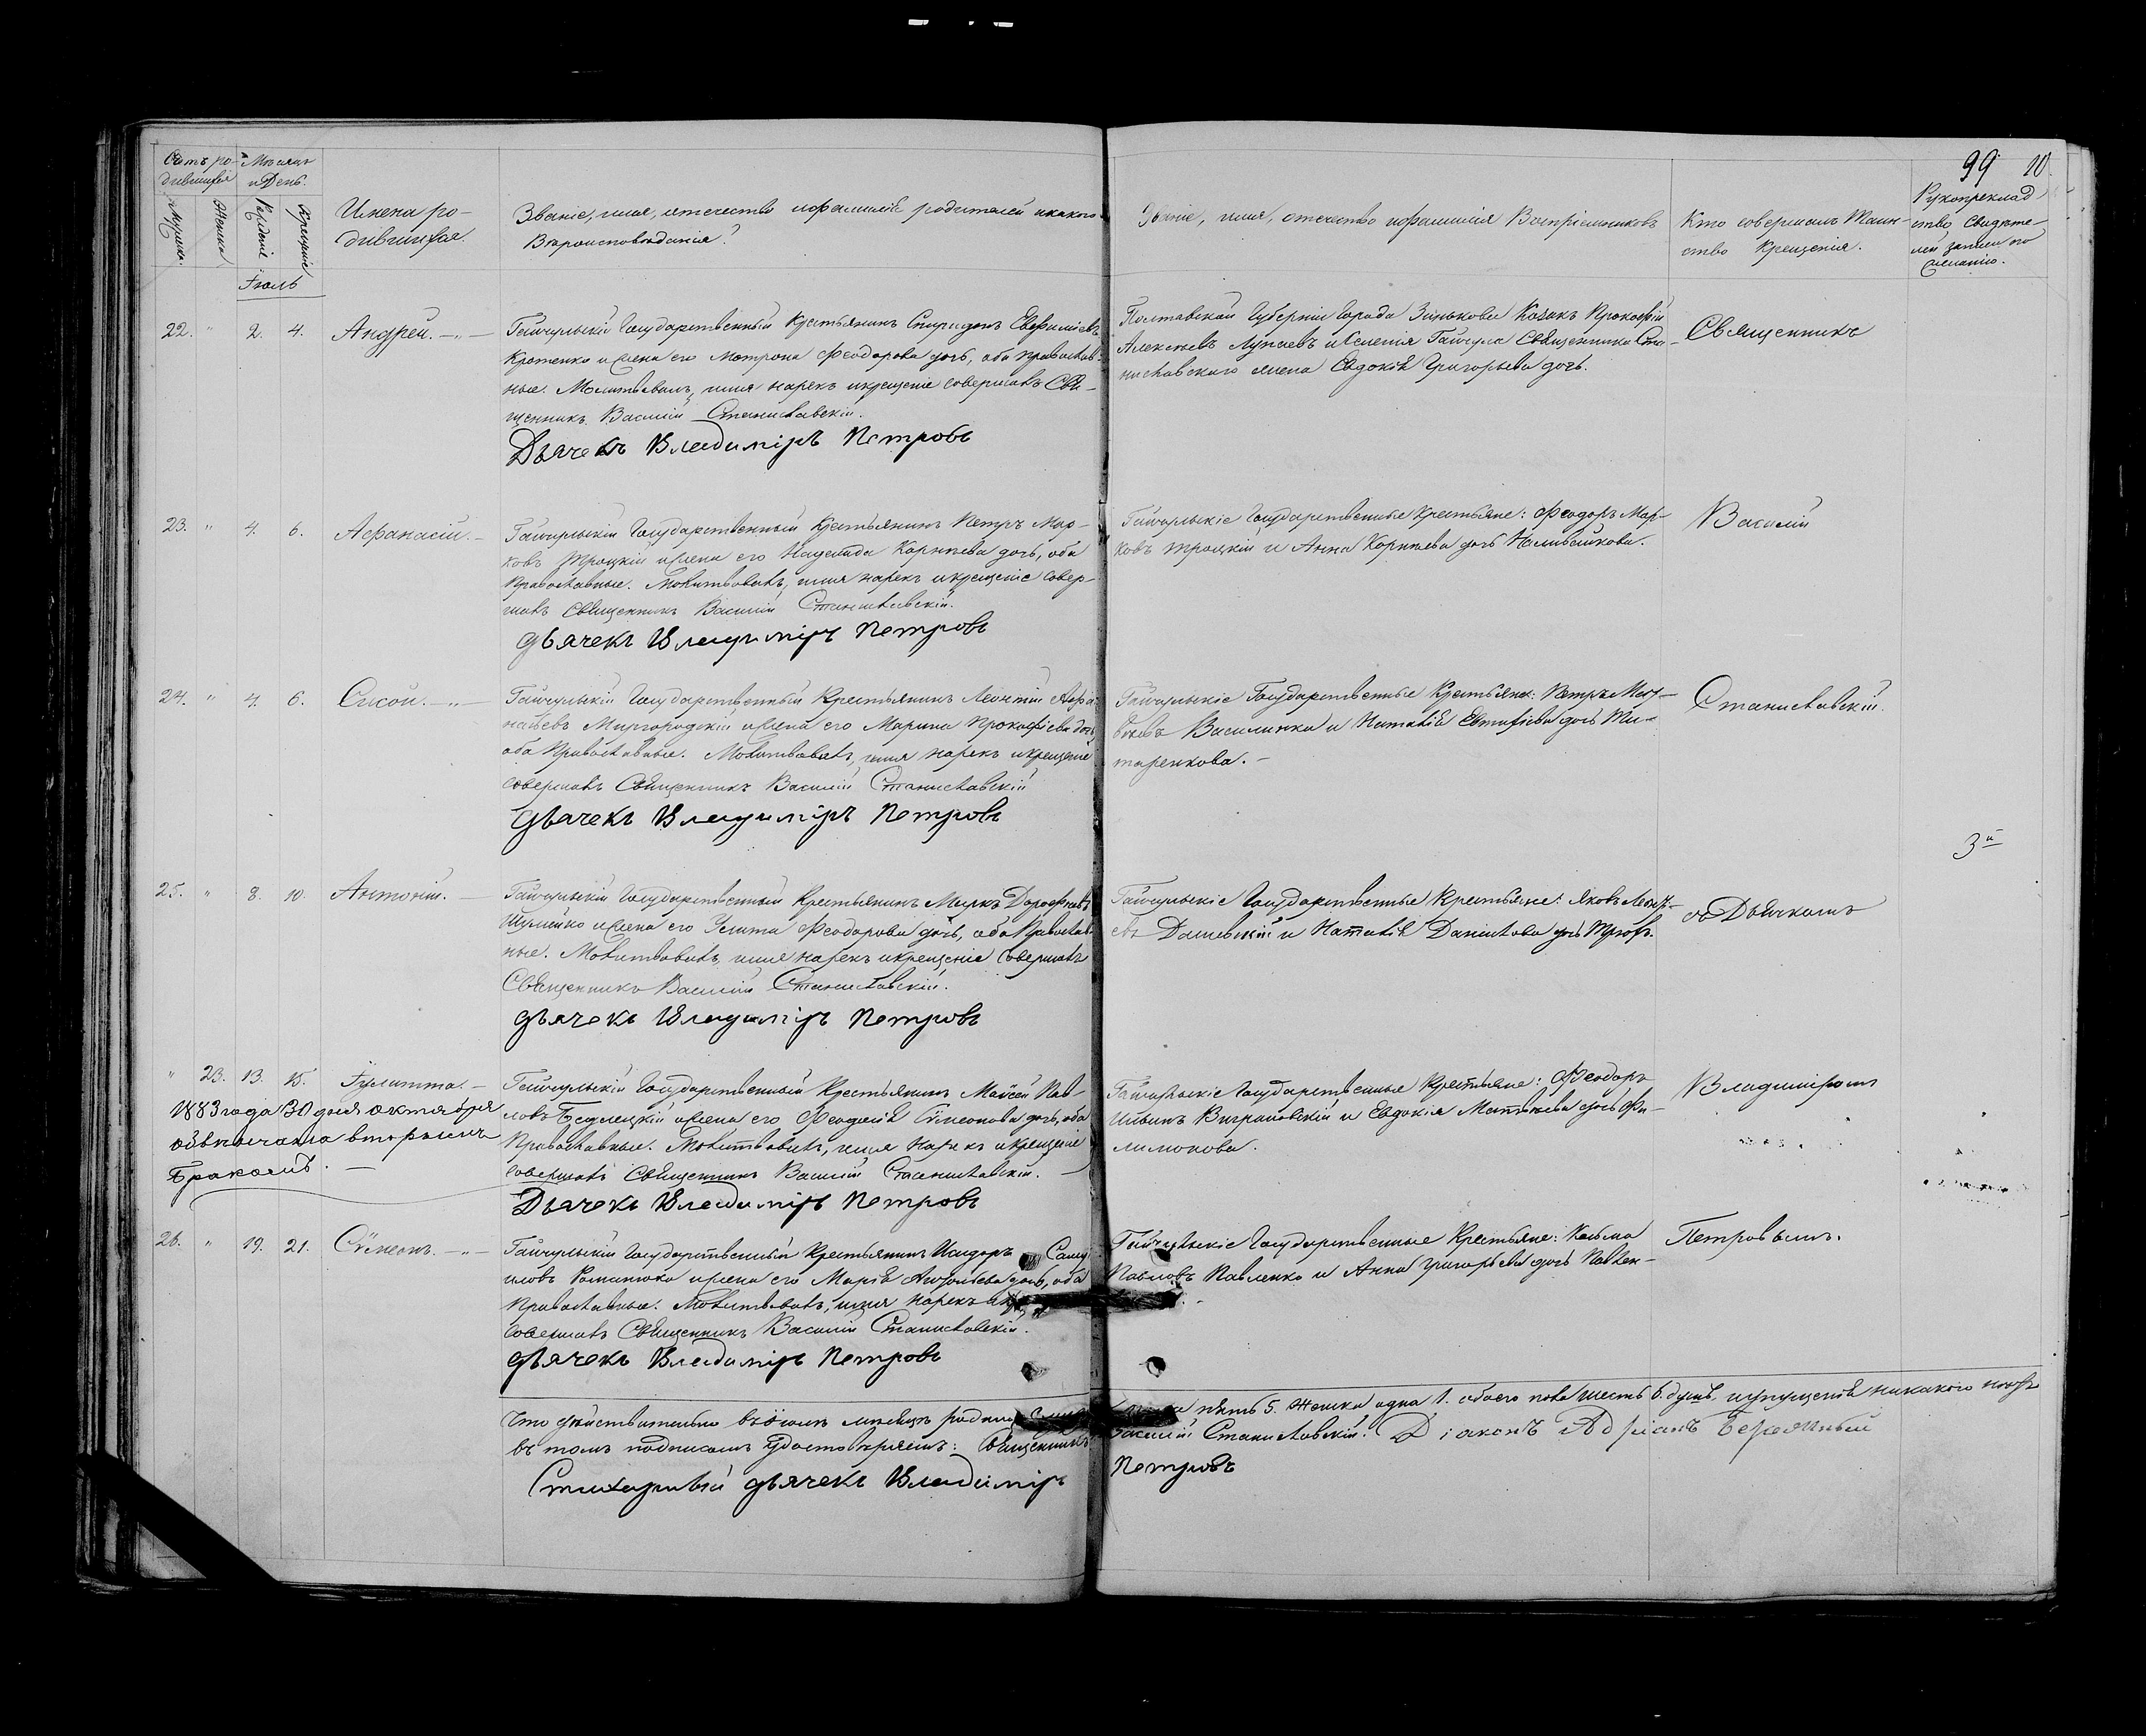 99 10.
Счетъ ро-
дившихся
Мѣсяцъ
и День.
Мужеска.
Женска
Рожденія
Крещенія
Имена ро-
дившихся.
Званіе, имя, отечество и фамилія родителей и какого
Вѣроисповѣданія?
Званіе, имя, отечество и фамилія Воспріемниковъ
Кто совершалъ Таин-
ство Крещенія.
Рукоприклад
ство Свидѣте-
лей записи по
Желанію.
Іюль
22. " 2. 4. Андрей. —"—
Гайчульскій Государственный Крестьянинъ Спиридонъ Евфиміевъ
Кротенко и жена его Матрона Феодорова дочь, оба православ-
ные. Молитвовалъ, имя нарекъ и крещеніе совершалъ Свя-
щенникъ Василій Станиславскій.
Дьячекъ Владиміръ Петровъ
Полтавской Губерніи Города Зинькова Козакъ Прокофій
Алексѣевъ Лупаевъ и селенія Гайчула Священника Ста-
ниславскаго жена Евдокія Григорьева дочь.
Священникъ
23. " 4. 6. Афанасій. —
Гайчульскій Государственный Крестьянинъ Петръ Мар-
ковъ Троцкій и жена его Надежда Корнѣева дочь, оба
Православные. Молитвовалъ, имя нарекъ и крещеніе совер-
шалъ Священникъ Василій Станиславскій.
Дьячекъ Владиміръ Петровъ
Гайчульскіе Государственные Крестьяне: Феодоръ Мар-
ковъ Троцкій и Анна Корнѣева дочь Наливайкова.
Василій
24. " 4. 6. Сисой. —"—
Гайчульскій Государственный Крестьянинъ Леонтій Афа-
насьевъ Миргородскій и жена его Марина Прокофіева дочь,
оба Православные. Молитвовалъ, имя нарекъ и крещеніе
совершалъ Священникъ Василій Станиславскій
Дьячекъ Владиміръ Петровъ
Гайчульскіе Государственные Крестьяне: Петръ
Василинка и Наталія Евтифіева дочь Ти-
таренкова. —
Станиславскій
3й
25. " 8. 10. Антоній. —
Гайчульскій Государственный Крестьянинъ Маркъ Дорофѣевъ
Шулейко и жена его Улита Феодорова дочь, оба Православ-
ные. Молитвовалъ, имя нарекъ и крещеніе совершалъ
Священникъ Василій Станиславскій.
Дьячекъ Владиміръ Петровъ
Гайчульскіе Государственные Крестьяне: Яковъ Леонтъ-
евъ Дашевскій и Наталія Даніилова дочь
съ Дьячкомъ
" 23. 13. 15. Іулитта. —
1883 года 30 дня октября
обвѣнчана вторымъ
бракомъ. —
Гайчульскій Государственный Крестьянинъ Моѵсей Пав-
ловъ и жена его Феодосія Сѵмеонова дочь, оба
Православные. Молитвовалъ, имя нарекъ и крещеніе
совершалъ Священникъ Василій Станиславскій. —
Дьячекъ Владиміръ Петровъ
Гайчульскіе Государственные Крестьяне: Феодоръ
Ильинъ Виграновскій и Евдокія Матвѣева дочь Фи-
лимонова.
Владиміромъ
26. " 19. 21. Сѵмеонъ. —"—
Гайчульскій Государственный Крестьянинъ Исидоръ Саму-
иловъ Романюко и жена его Марія дочь, оба
Православные. Молитвовалъ, имя нарекъ
совершалъ Священникъ Василій Станиславскій.
Дьячекъ Владиміръ Петровъ
Гайчульскіе Государственные Крестьяне: Козьма
Павловъ Павленко и Анна Григорьева дочь Павлен-
Петровымъ.
Что дѣйствительно въ Іюлѣ мѣсяцѣ родилось пять 5. Женска одна 1. обоего пола шесть 6. душъ, и пропусковъ никакого нѣтъ
въ томъ подписомъ удостовѣряемъ: Священникъ Василій Станиславскій. Діаконъ Адріанъ
Стихарный дьячекъ Владиміръ Петровъ